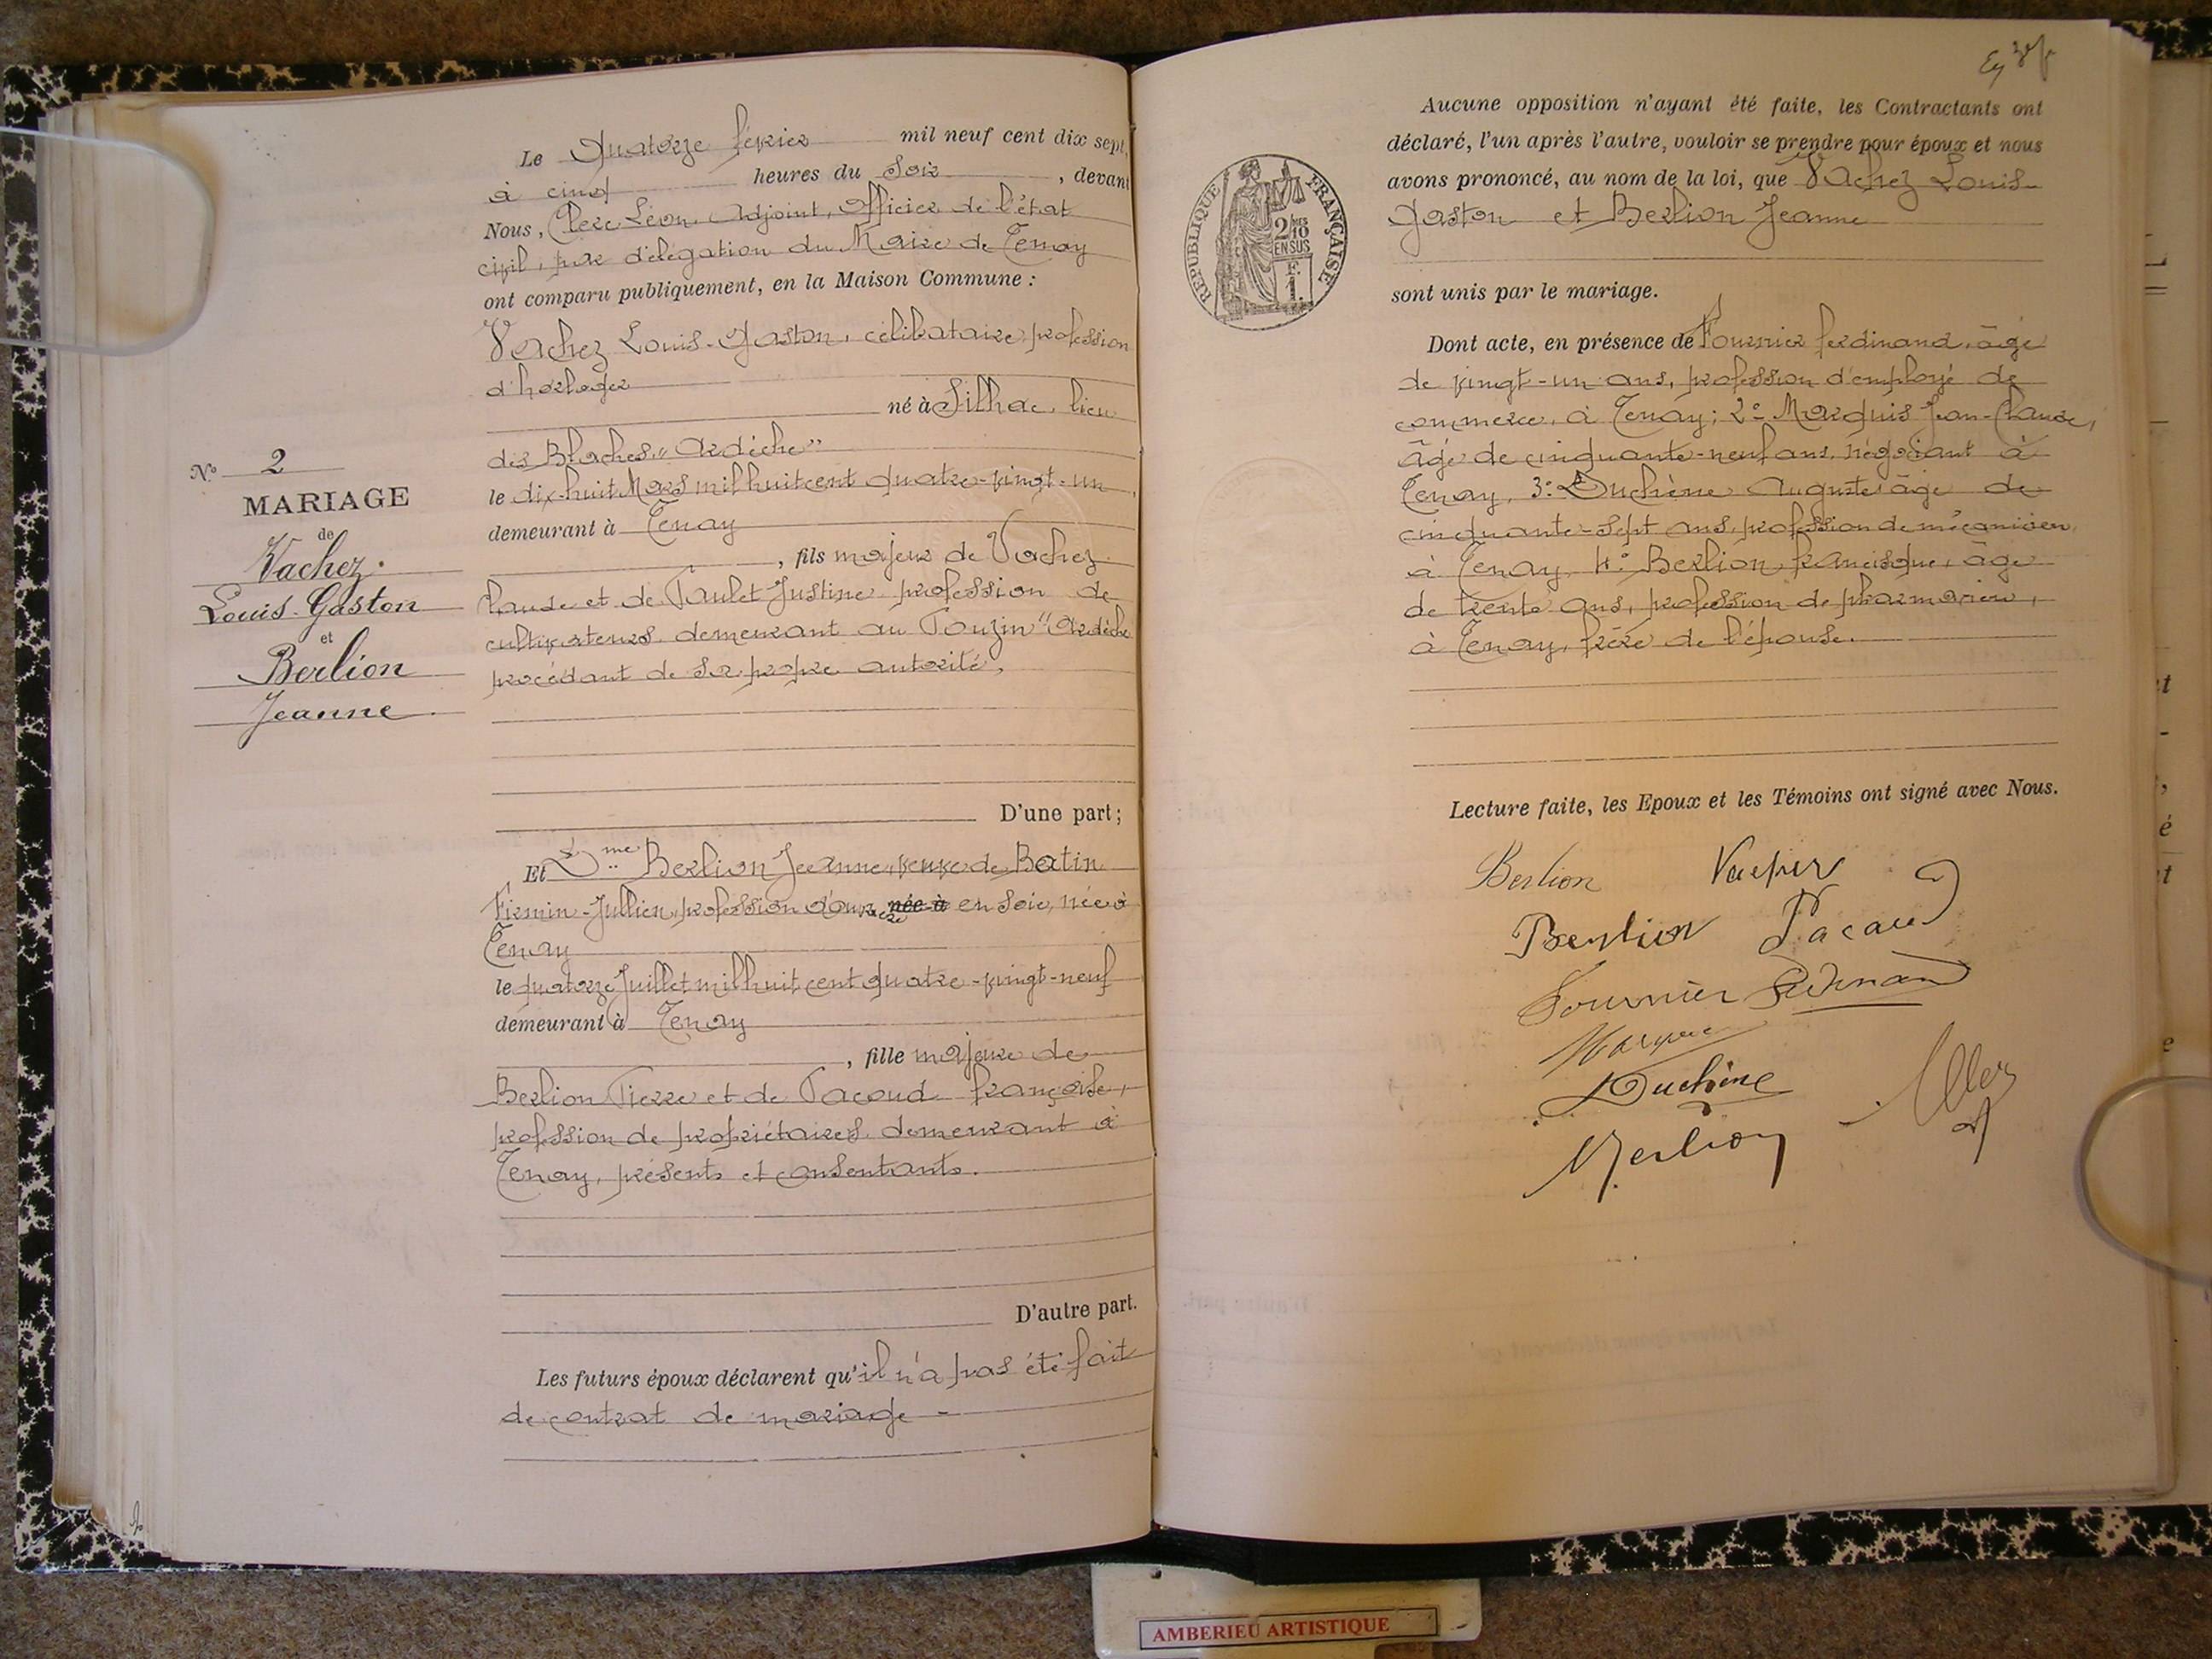 Le Quatorze février mil neuf cent dix sept,
à cinq heures du soir, devant
Nous, Clerc Léon, Adjoint, officier de l'état
civil, par délégation du Maire de Tenay
ont comparu publiquement, en la Maison Commune :
Vachez Louis-Gaston, célibataire, profession
d'horloger
né à Silhac, lieu
des Blaches, "Ardèche"
le dix-huit Mars mil huit cent quatre-vingt-un
demeurant à Tenay
, fils majeur de Vachez
Claude et de Paulet Justine profession de
cultivateurs demeurant au Pouzin "Ardèche
procédant de sa propre autorité,
D'une part;
N° 2
MARIAGE
de
Vachez.
Louis-Gaston
et
Berlion
Jeanne
Et Dme Berlion Jeanne, veuve de Batin
Firmin-Jullien, profession d'ouvrière née à en soie, née à
Tenay
le quatorze Juillet mil huit cent quatre-vingt-neuf
demeurant à Tenay
, fille majeure de
Berlion Pierre et de Pacoud françoise,
profession de propriétaires demeurant à
Tenay, présents et consentants.
D'autre part.
Les futurs époux déclarent qu'il n'a pas été fait
de contrat de mariage -
Aucune opposition n'ayant été faite, les Contractants ont
déclaré, l'un après l'autre, vouloir se prendre pour époux et nous
avons prononcé, au nom de la loi, que Vachez Louis-
Gaston et Berlion Jeanne
sont unis par le mariage.
RÉPUBLIQUE FRANÇAISE
2/10
EN SUS
F.
1.
Dont acte, en présence de Fournier ferdinand, âgé
de vingt-un ans, profession d'employé de
commerce, à Tenay; 2° Marquis Jean-Claude,
âgé de cinquante-neuf ans, négociant à
Tenay, 3° Duchène Auguste âgé de
cinquante-sept ans, profession de mécanicien
à Tenay, 4° Berlion francisque, âgé
de trente ans, profession de pharmacien,
à Tenay, frère de l'épouse.
Lecture faite, les Epoux et les Témoins ont signé avec Nous.
Berlion Vachez
Berlion Pacaud
Fournier Ferdinand
Marquis
Duchène
Berlion
AMBERIEU ARTISTIQUE